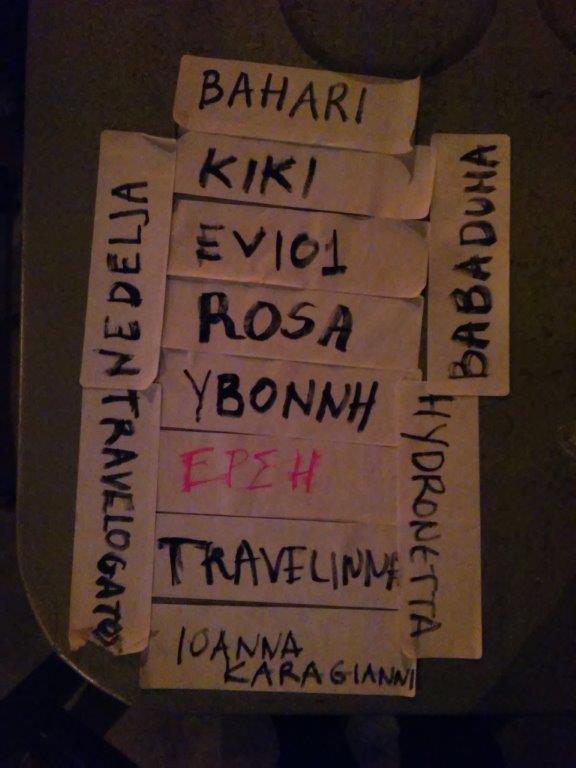 BAHARI
KIKI
EVIO1
ROSA
YBONNH
ΕΡΣΗ
TRAVELINNA
IOANNA
KARAGIANNI
NEDELJA
BABADUHA
HYDRONETTA